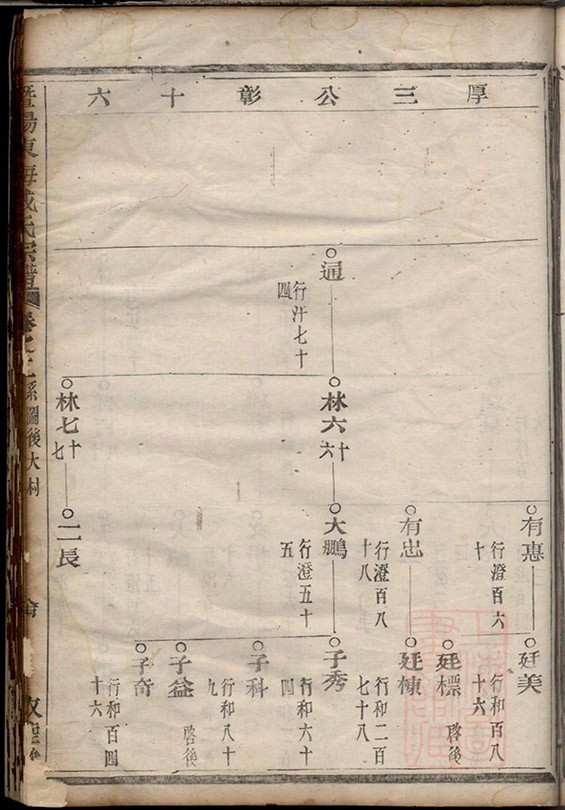 厚三公彰十六
通
行汗七十四
林六十六
林七十七
有惠
行澄百六十
有忠
行澄百八十八
大鵬
行澄五十五
二長
廷美
行和百八十六
廷標
啓後
廷棟
行和二百七十八
子秀
行和六十四
子科
行和八十九
子益
啓後
子奇
行和百四十六
暨陽東海戚氏宗譜
卷之二系圖後大村